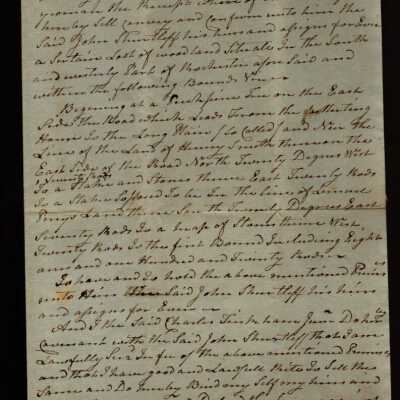 hereby Sell convey and confirm unto him the
Said John Shurtleff his heirs and assigns for Ever
a Certain Lott of woodland Scituate In the South
and westerly Part of Rochester afore Said and
within the following Bounds Viz
Begining at a Pitchpine Tree on the East
Side the Road which Leads From the meeting
House To the Long Plain (So Called) and Near the
Line of the Land of Henry Smith thence on the
East Side of the Road North Twenty Degrees West
Seventy Rods
To a Stake and Stones thence East Twenty Rods
To a Stake Soposed To be In the line of Lemuel
Land thence South Twenty Degrees East
Seventy Rods To a heap of Stones thence West
Twenty Rods To the first Bound Including Eight
acrs and one Hundred and Twenty Rods
To have and to hold the above mentioned Premises
unto Him the Said John Shurtleff his heirs
and assigns for Ever
And I the Said Charles Junr Do
Covenant with the Said John Shurtleff that I am
Lawfully Siezd In fee of the above mentioned Premises
and that I have good and Lawfull Rite To Sell the
Same and Do hereby Bind my Self my heirs and